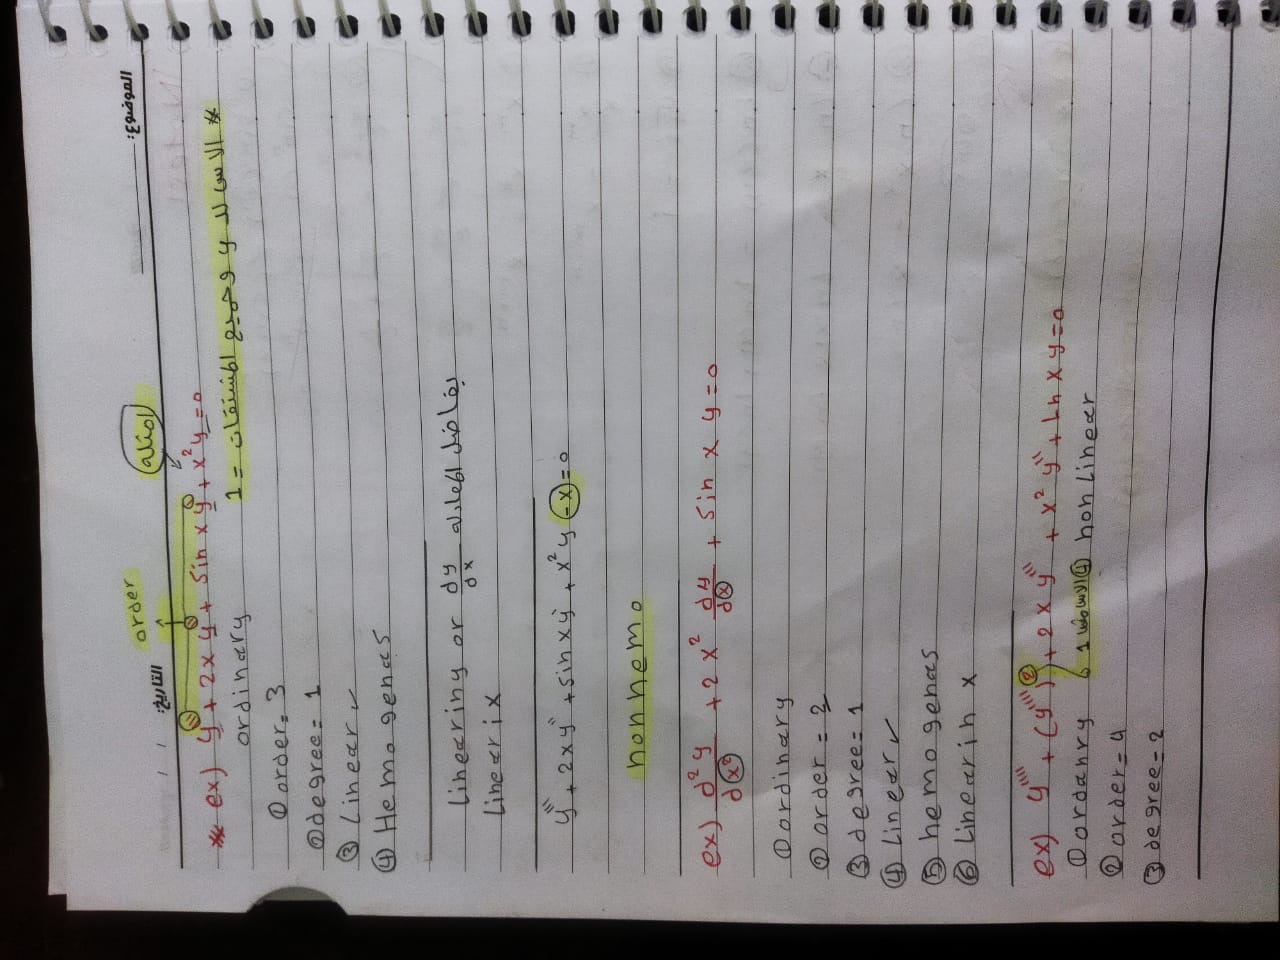 الموضوع:
order
امثله
التاريخ: / /
* ex) y''' + 2x y'' + sin x y' + x² y = 0
ordinary
* الاس لد y وجميع المشتقات = 1
① order = 3
② degree = 1
③ Linear ✓
④ Hemogenas
Lineariny or dy/dx يفاضل المعادله
Linear i x
y''' + 2xy'' + sin xy' + x² y - x = 0
non hemo
ex) d²y/dx² + 2x² dy/dx + sin x y = 0
① ordinary
② order = 2
③ degree = 1
④ Linear ✓
⑤ hemogenas
⑥ Linear in x
ex) y'''' + (y'''')² + 2x y''' + x² y'' + Ln x y = 0
① ordanry 1 ④ non linear
② order = 4
③ degree = 2